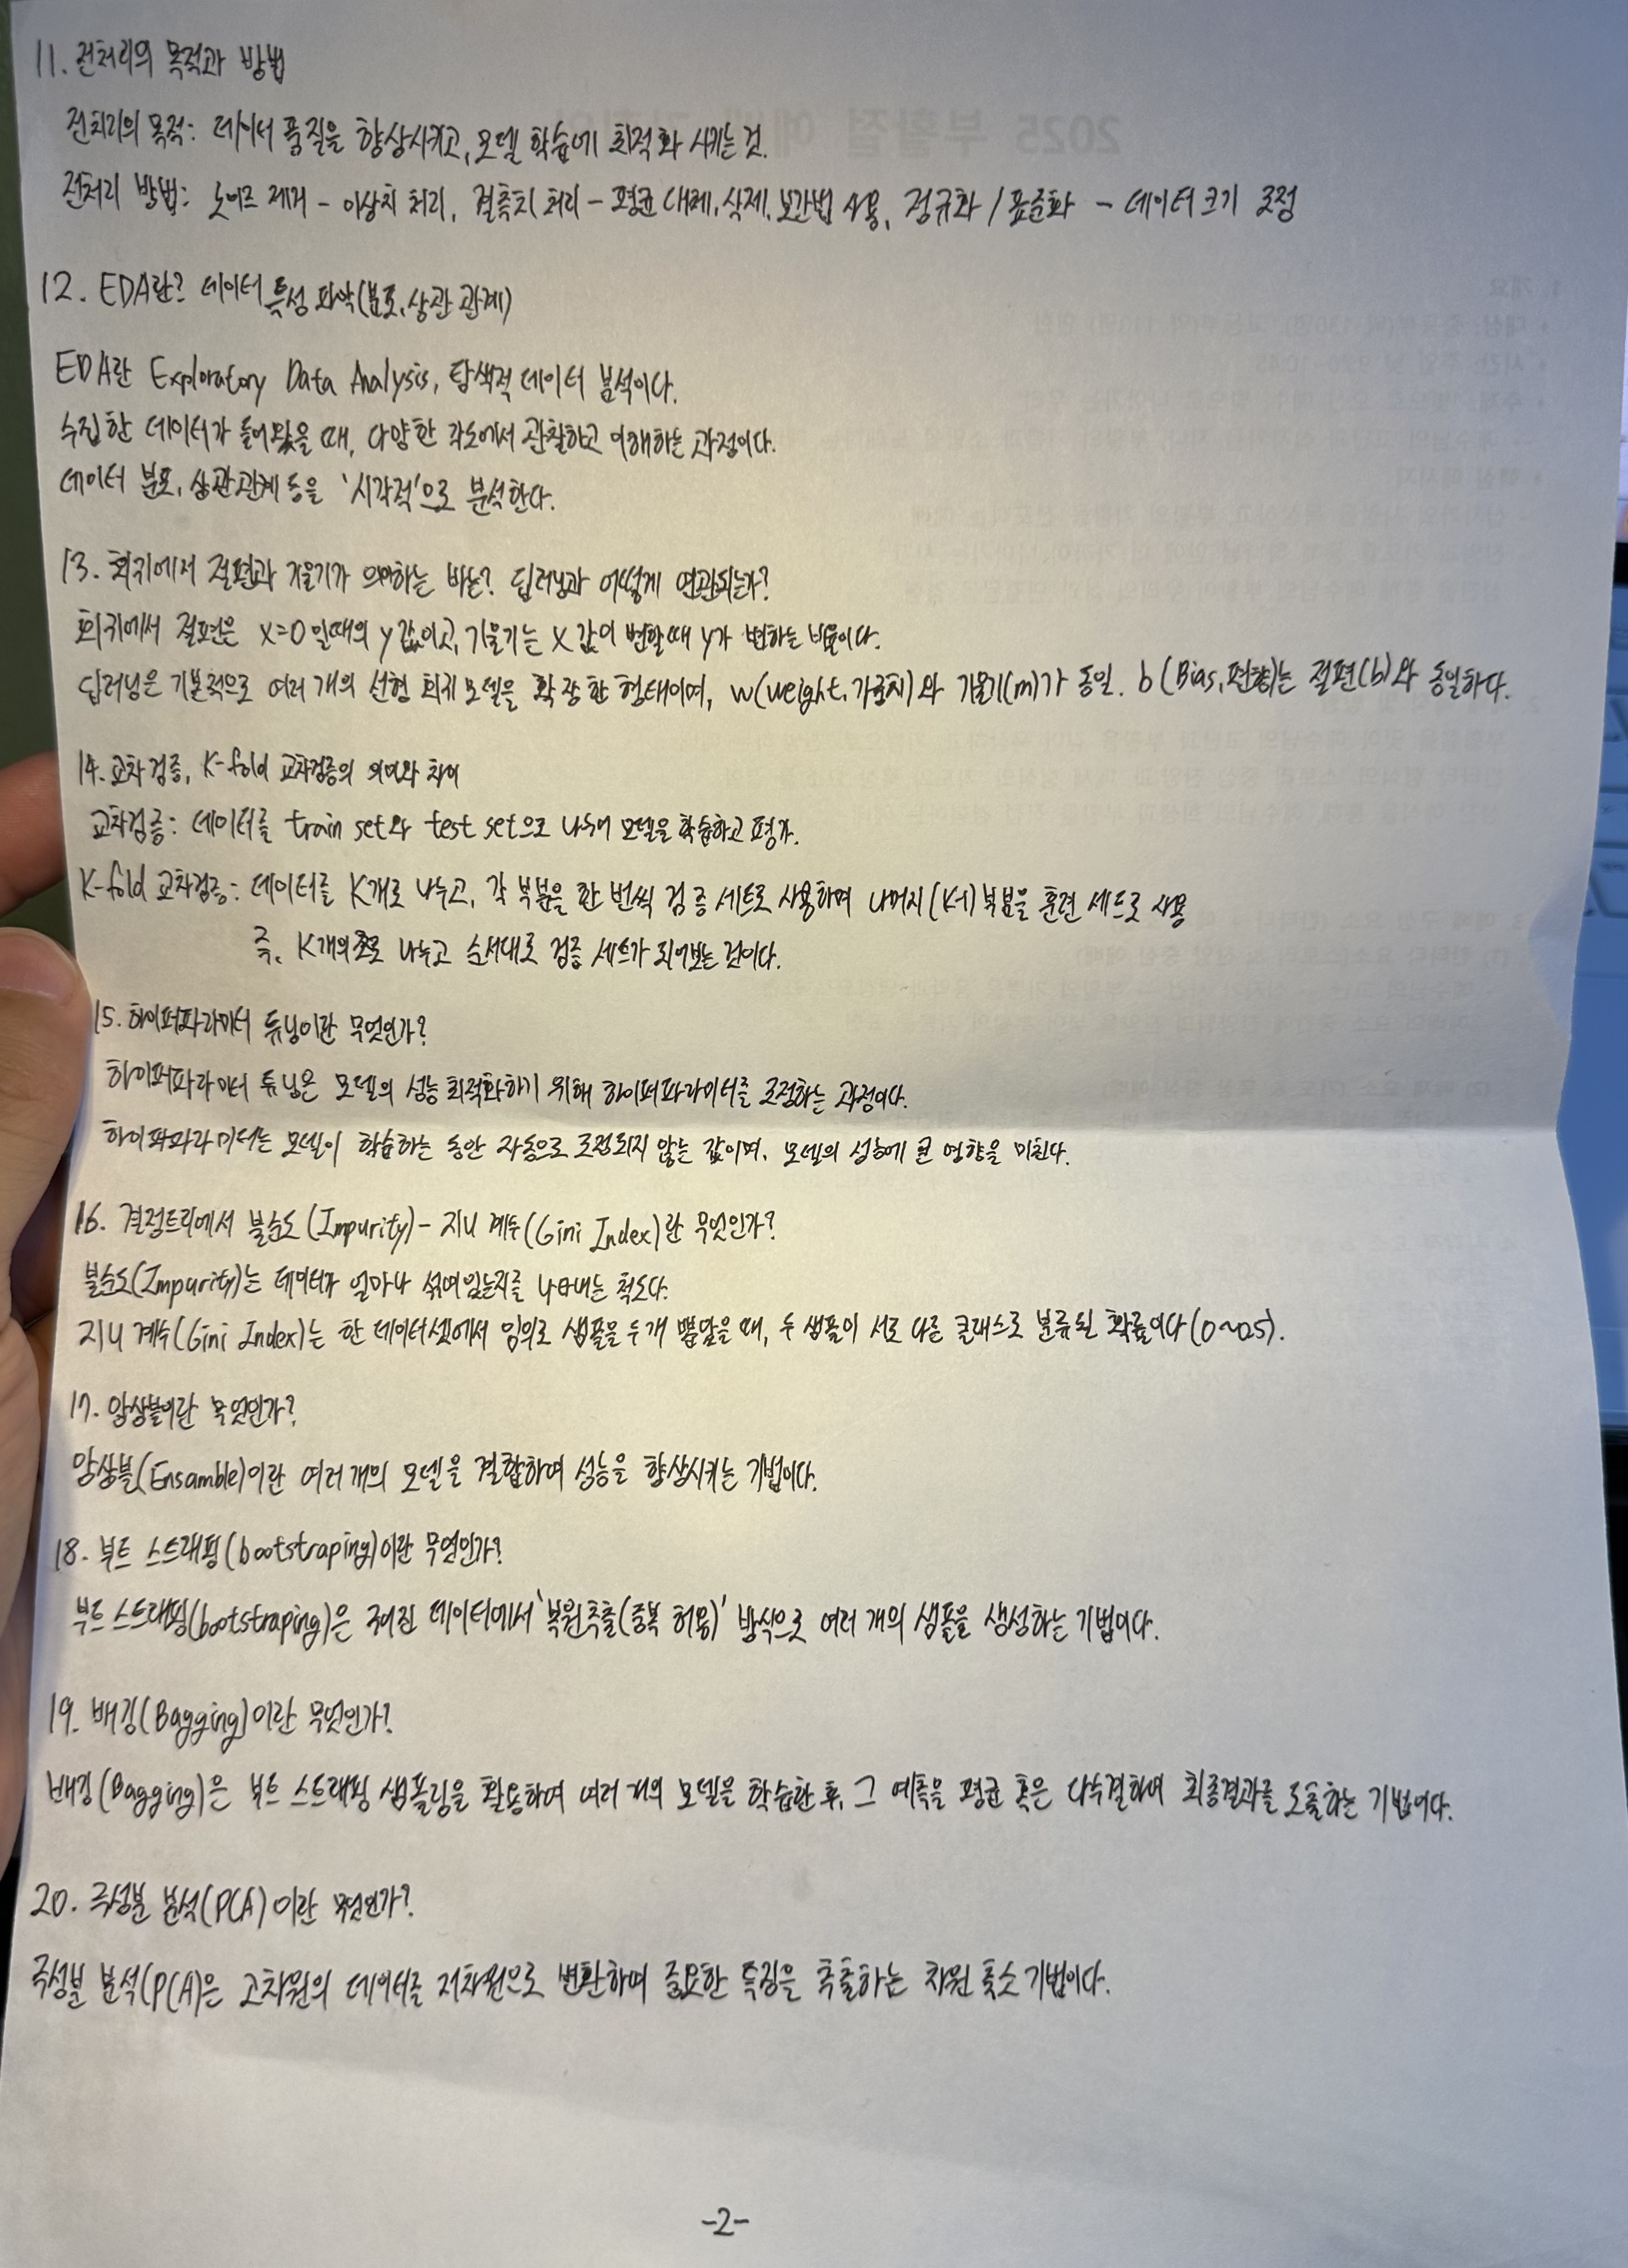 11. 전처리의 목적과 방법
전처리의 목적: 데이터 품질을 향상시키고, 모델 학습에 최적화 시키는 것.
전처리 방법: 노이즈 제거 - 이상치 처리, 결측치 처리 - 평균 대체, 삭제, 보간법 사용, 정규화 / 표준화 - 데이터 크기 조정
12. EDA란? 데이터 특성 파악(분포, 상관 관계)
EDA란 Exploratory Data Analysis, 탐색적 데이터 분석이다.
수집한 데이터가 들어왔을 때, 다양한 각도에서 관찰하고 이해하는 과정이다.
데이터 분포, 상관관계 등을 '시각적'으로 분석한다.
13. 회귀에서 절편과 기울기가 의미하는 바는? 딥러닝과 어떻게 연관되는가?
회귀에서 절편은 x=0 일때의 y값이고, 기울기는 x값이 변할때 y가 변하는 비율이다.
딥러닝은 기본적으로 여러 개의 선형 회귀 모델을 확장한 형태이며, w(weight, 가중치)와 기울기(m)가 동일. b(Bias, 편향)는 절편(b)와 동일하다.
14. 교차검증, K-fold 교차검증의 의미와 차이
교차검증: 데이터를 train set와 test set으로 나누어 모델을 학습하고 평가.
K-fold 교차검증: 데이터를 K개로 나누고, 각 부분을 한 번씩 검증 세트로 사용하며 나머지 (K-1) 부분을 훈련 세트로 사용
즉, K개의 나누고 순서대로 검증 세트가 되어보는 것이다.
15. 하이퍼파라미터 튜닝이란 무엇인가?
하이퍼파라미터 튜닝은 모델의 성능 최적화하기 위해 하이퍼파라미터를 조정하는 과정이다.
하이퍼파라미터는 모델이 학습하는 동안 자동으로 조정되지 않는 값이며, 모델의 성능에 큰 영향을 미친다.
16. 결정트리에서 불순도(Impurity) - 지니 계수(Gini Index)란 무엇인가?
불순도(Impurity)는 데이터가 얼마나 섞여있는지를 나타내는 척도다.
지니 계수(Gini Index)는 한 데이터셋에서 임의로 샘플을 두개 뽑았을 때, 두 샘플이 서로 다른 클래스로 분류될 확률이다 (0~0.5).
17. 앙상블이란 무엇인가?
앙상블(Ensamble)이란 여러 개의 모델을 결합하여 성능을 향상시키는 기법이다.
18. 부트 스트래핑(bootstraping)이란 무엇인가?
부트 스트래핑(bootstraping)은 주어진 데이터에서 '복원추출(중복 허용)' 방식으로 여러 개의 샘플을 생성하는 기법이다.
19. 배깅(Bagging)이란 무엇인가?
배깅(Bagging)은 부트 스트래핑 샘플링을 활용하여 여러 개의 모델을 학습한 후, 그 예측을 평균 혹은 다수결하여 최종결과를 도출하는 기법이다.
20. 주성분 분석(PCA)이란 무엇인가?
주성분 분석(PCA)은 고차원의 데이터를 저차원으로 변환하여 중요한 특징을 추출하는 차원 축소 기법이다.
-2-